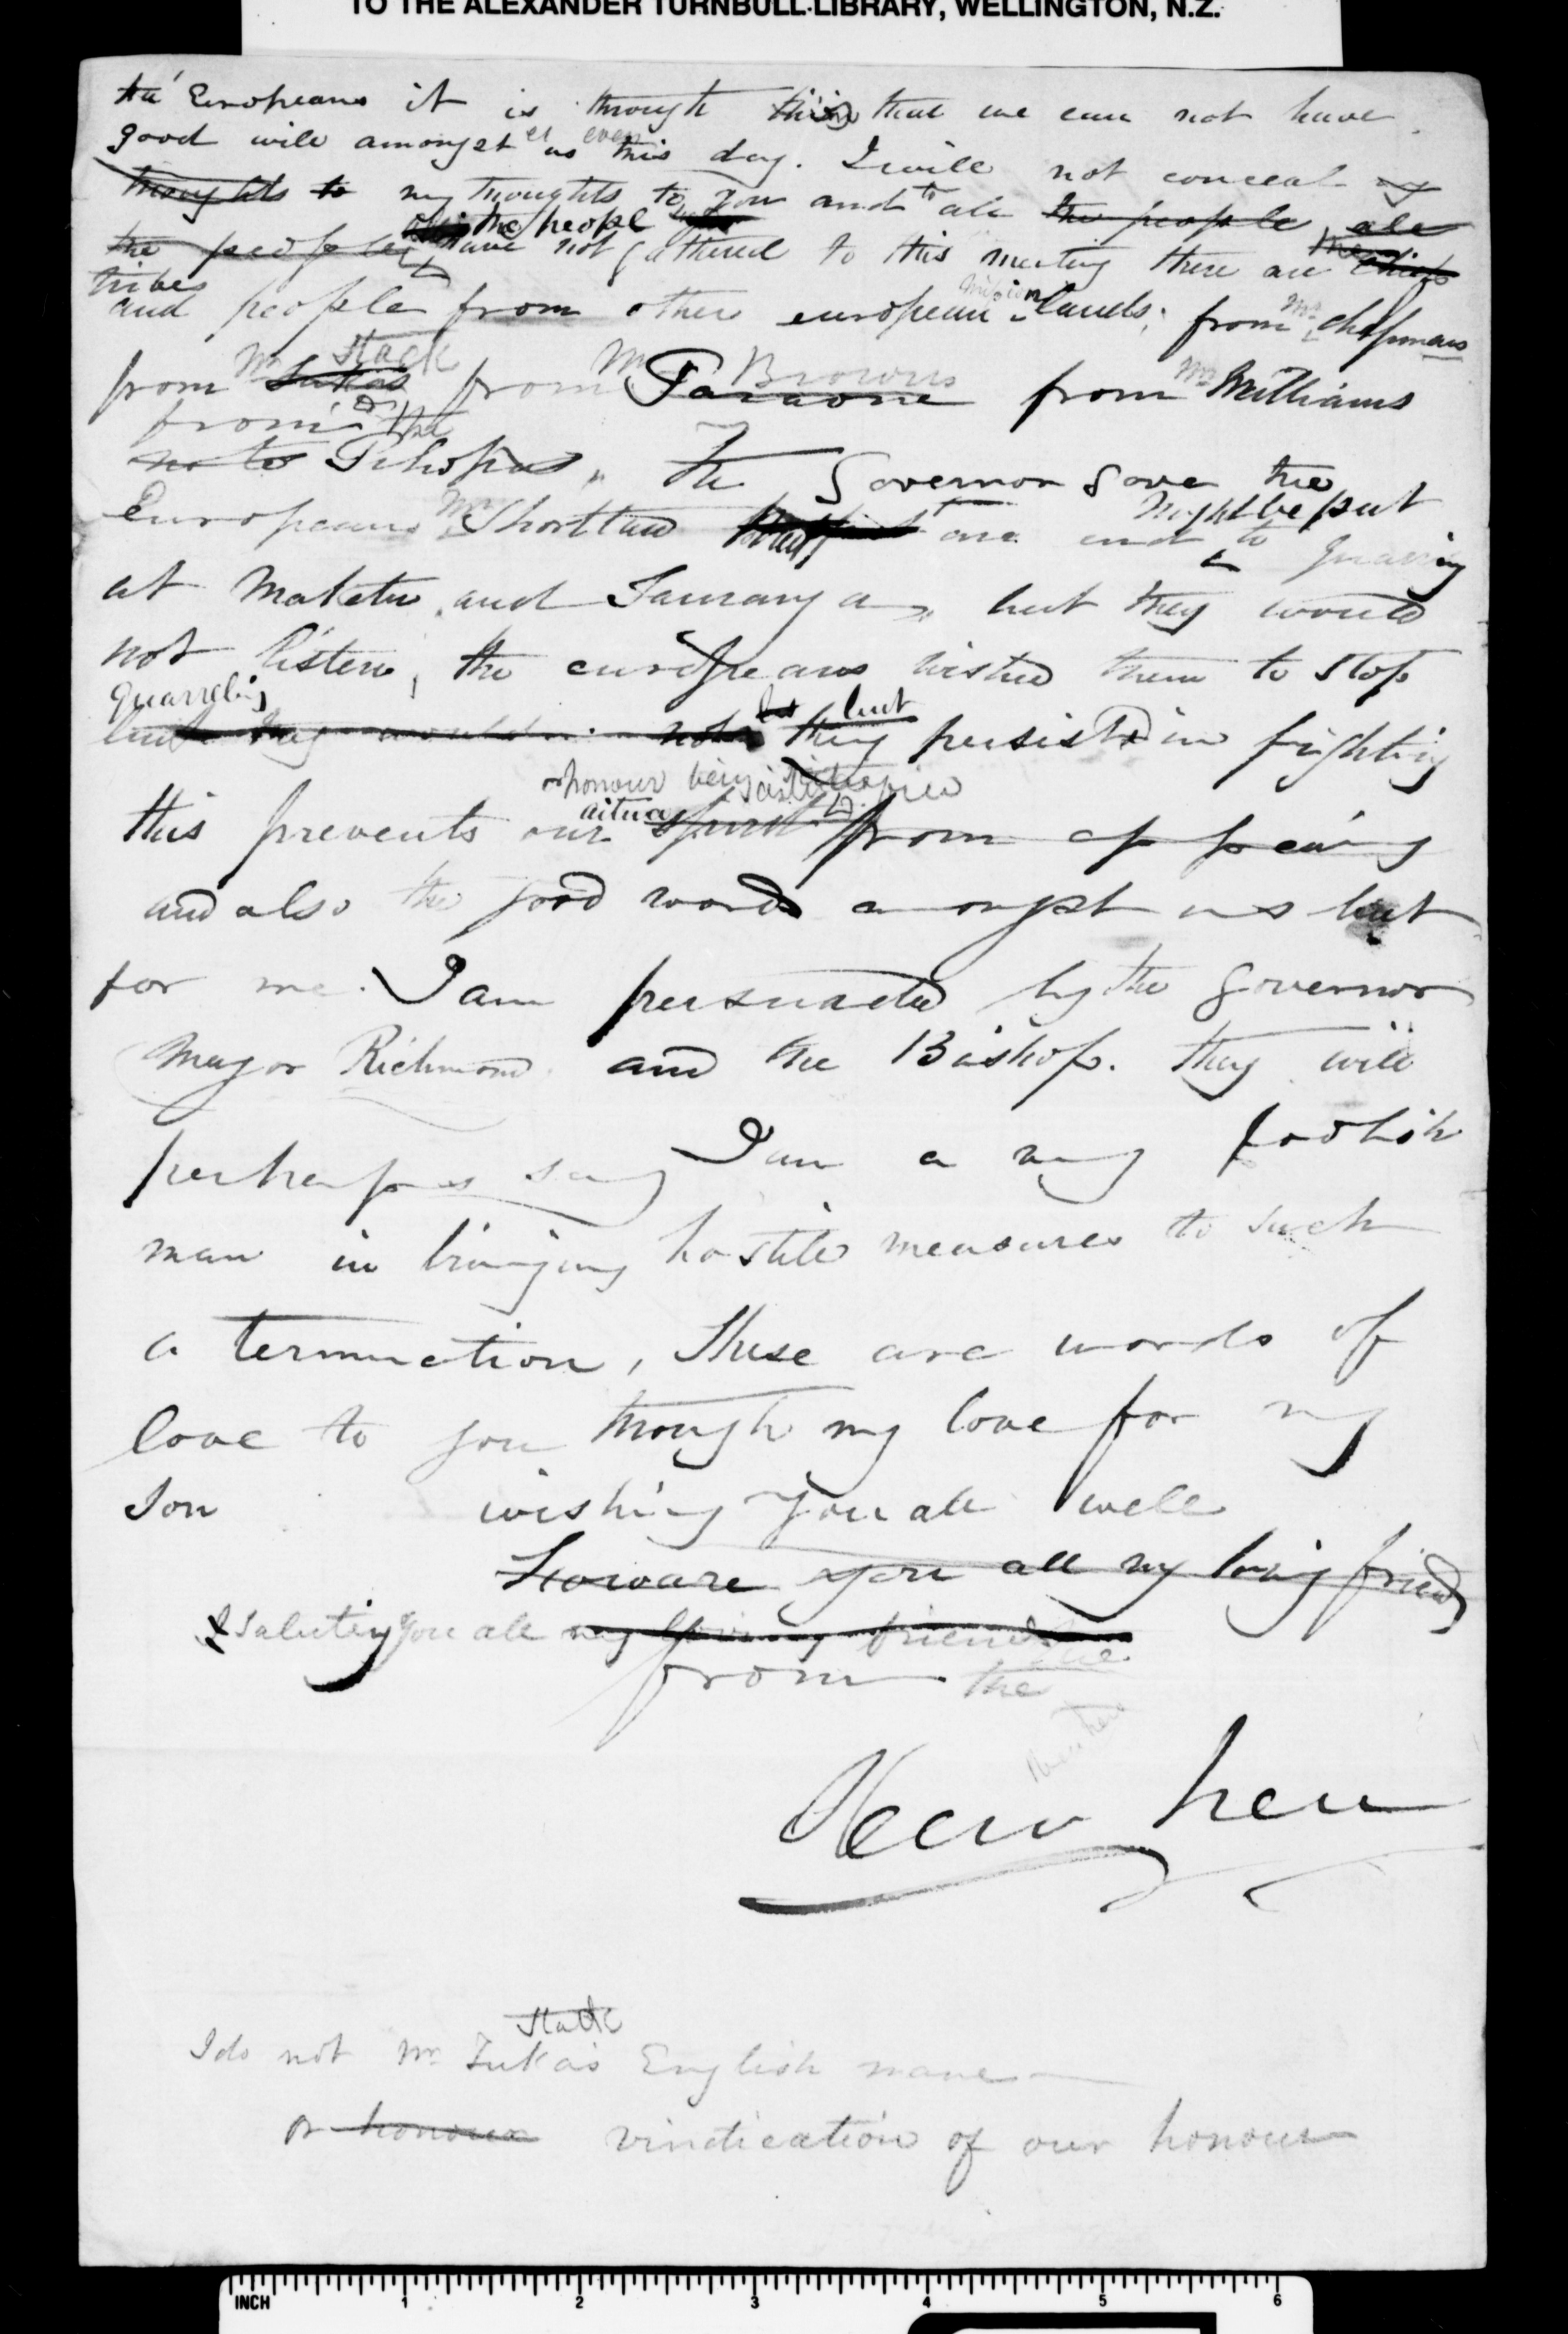 TO THE ALEXANDER TURNBULL LIBRARY, WELLINGTON, N.Z.
Europeans it is through this that we can not have
good will amongst us even this day. I will not conceal my
thoughts to my thoughts to you and to all the people all
the people the people have not gathered to this meeting there are the chiefs
tribes
and people from other european mission lands; from Mr Chapmans
from Mr Tukas Stack from Mr Paraone Browns from Mr Williams
from the
no te Pihopa" The Governor gave the
Europeans Mr Shortland one end might be put to quarreling
at Maketu and Tauranga" but they would
not listen, the europeans wished them to stop
quarreling
but they would not but they persisted in fighting
or honour being satisfied
this prevents our aitua spirit from appearing
and also the good words amongst us but
for me. I am persuaded by the Governor
Mayor Richmond and the Bishop. they will
perhaps say I am a very foolish
man in bringing hostile measures to such
a termination, These are words of
love to you through my love for my
son wishing you all well
you all my loving friends
& saluting you all my loving friends
from the
Heu heu
Stack
I do not Mr Tukas English name
or honour vindication of our honour
INCH 1 2 3 4 5 6